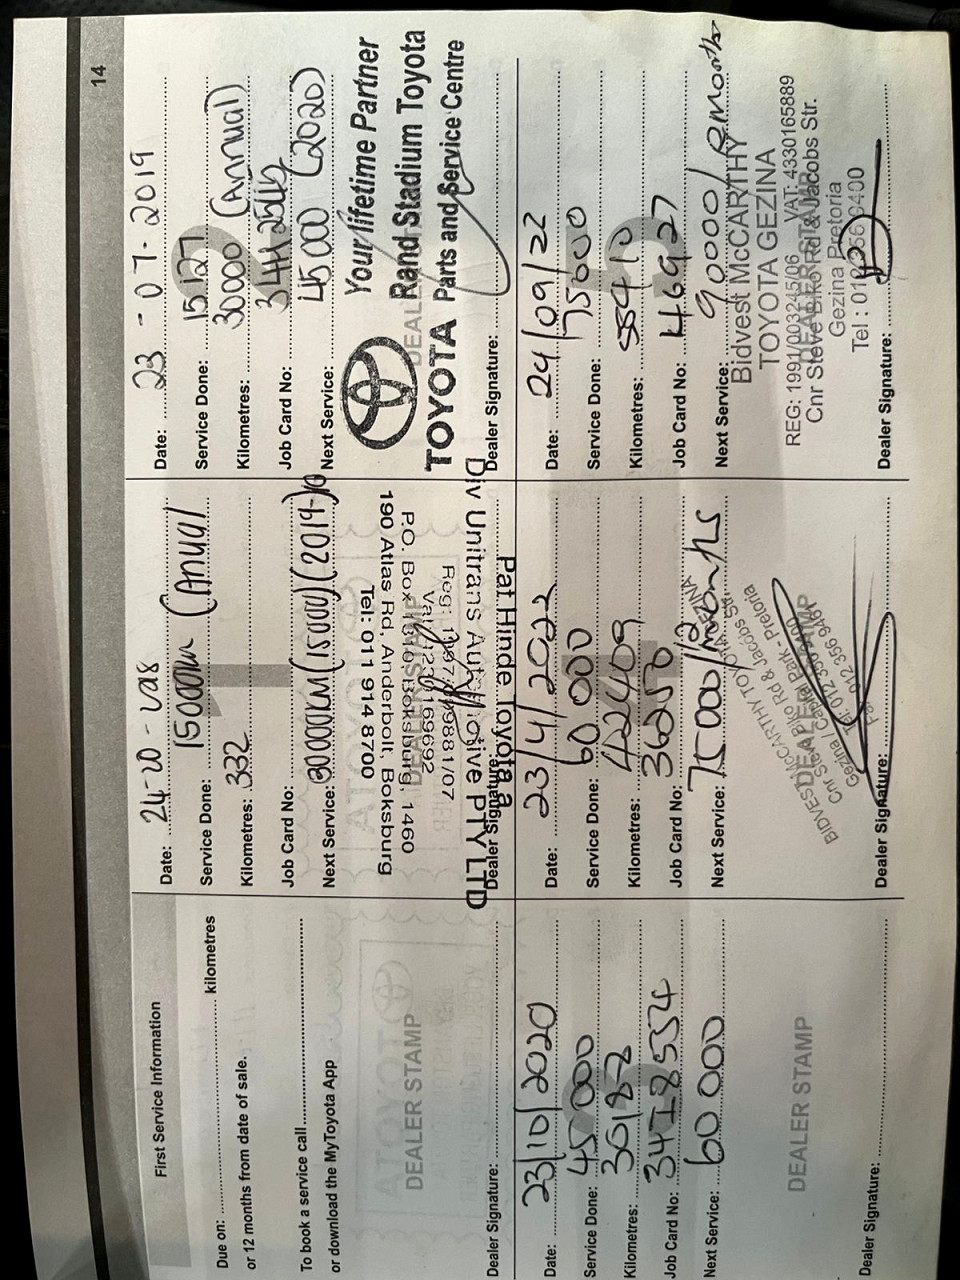 14
First Service Information
Due on: kilometres
or 12 months from date of sale.
To book a service call
or download the MyToyota App
DEALER STAMP
Dealer Signature:
Date: 24-20-
Service Done: 15000km (Anual)
Kilometres: 332
Job Card No:
Next Service: 30000KM (15000) (2019)
190 Atlas Rd, Anderbolt, Boksburg
Tel: 011 914 8700
P.O. Box Boksburg, 1460
Pat Hinde Toyota a
Div Unitrans Automotive PTY LTD
Dealer Signature:
Date: 23-07-2019
Service Done: 15127
Kilometres: 30000 (Annual)
Job Card No:
Next Service: 45000 (2020)
Your lifetime Partner
Rand Stadium Toyota
TOYOTA Parts and Service Centre
Dealer Signature:
Date: 23/10/2020
Service Done: 45 000
Kilometres: 30182
Job Card No:
Next Service: 60 000
DEALER STAMP
Dealer Signature:
Date: 23/4/2022
Service Done: 60 000
Kilometres: 42409
Job Card No: 36250
Next Service: 75000/12 months
BIDVEST MCCARTHY TOYOTA GEZINA
Cnr Steve Biko Rd & Jacobs Str
Gezina / Capital Park - Pretoria
DEALER STAMP
Dealer Signature:
Date: 24/09/22
Service Done: 75000
Kilometres: 55410
Job Card No: 46927
Next Service: 90000/
Bidvest McCARTHY
TOYOTA GEZINA
REG: 1991/003245/06 VAT: 4330165889
Cnr Steve Biko Rd & Jacobs Str.
Gezina Pretoria
DEALER STAMP
Dealer Signature: